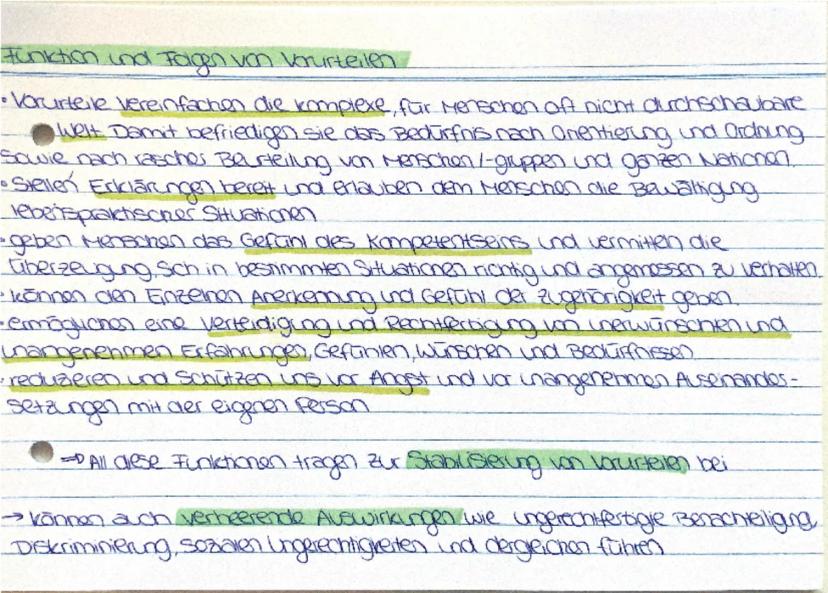 Funktion und Folgen von Vorurteilen
• Vorurteile vereinfachen die komplexe, für Menschen oft nicht durchschaubare
Welt. Damit befriedigen sie das Bedürfnis nach Orientierung und Ordnung
sowie nach rascher Beurteilung von Menschen/-gruppen und ganzen Nationen.
• Stellen Erklärungen bereit und erlauben dem Menschen die Bewältigung
lebenspraktischer Situationen
• geben Menschen das Gefühl des Kompetentseins und vermitteln die
Überzeugung, sich in bestimmten Situationen richtig und angemessen zu verhalten.
• können den Einzelnen Anerkennung und Gefühl der Zugehörigkeit geben.
• ermöglichen eine Verteidigung und Rechtfertigung von unerwünschten und
unangenehmen Erfahrungen, Gefühlen, Wünschen und Bedürfnissen
• reduzieren und Schützen uns vor Angst und vor unangenehmen Auseinander-
setzungen mit der eigenen Person
⇒ All diese Funktionen tragen zur Stabilisierung von Vorurteilen bei
→ können auch verheerende Auswirkungen wie ungerechtfertigte Benachteiligung,
Diskriminierung, sozialen Ungerechtigkeiten und dergleichen führen